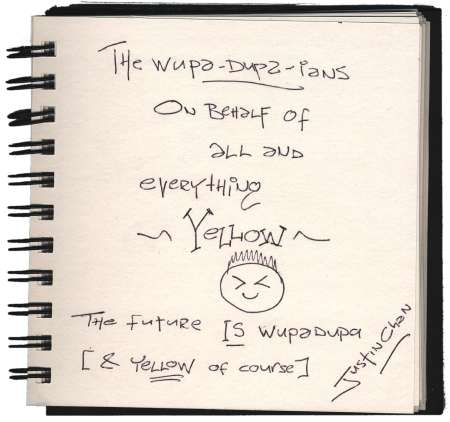 The Wupa-Dupa-ians
On Behalf of
all and
everything
~ Yellow ~
The future IS wupaDupa
[ & Yellow of course ]
Justin Chan